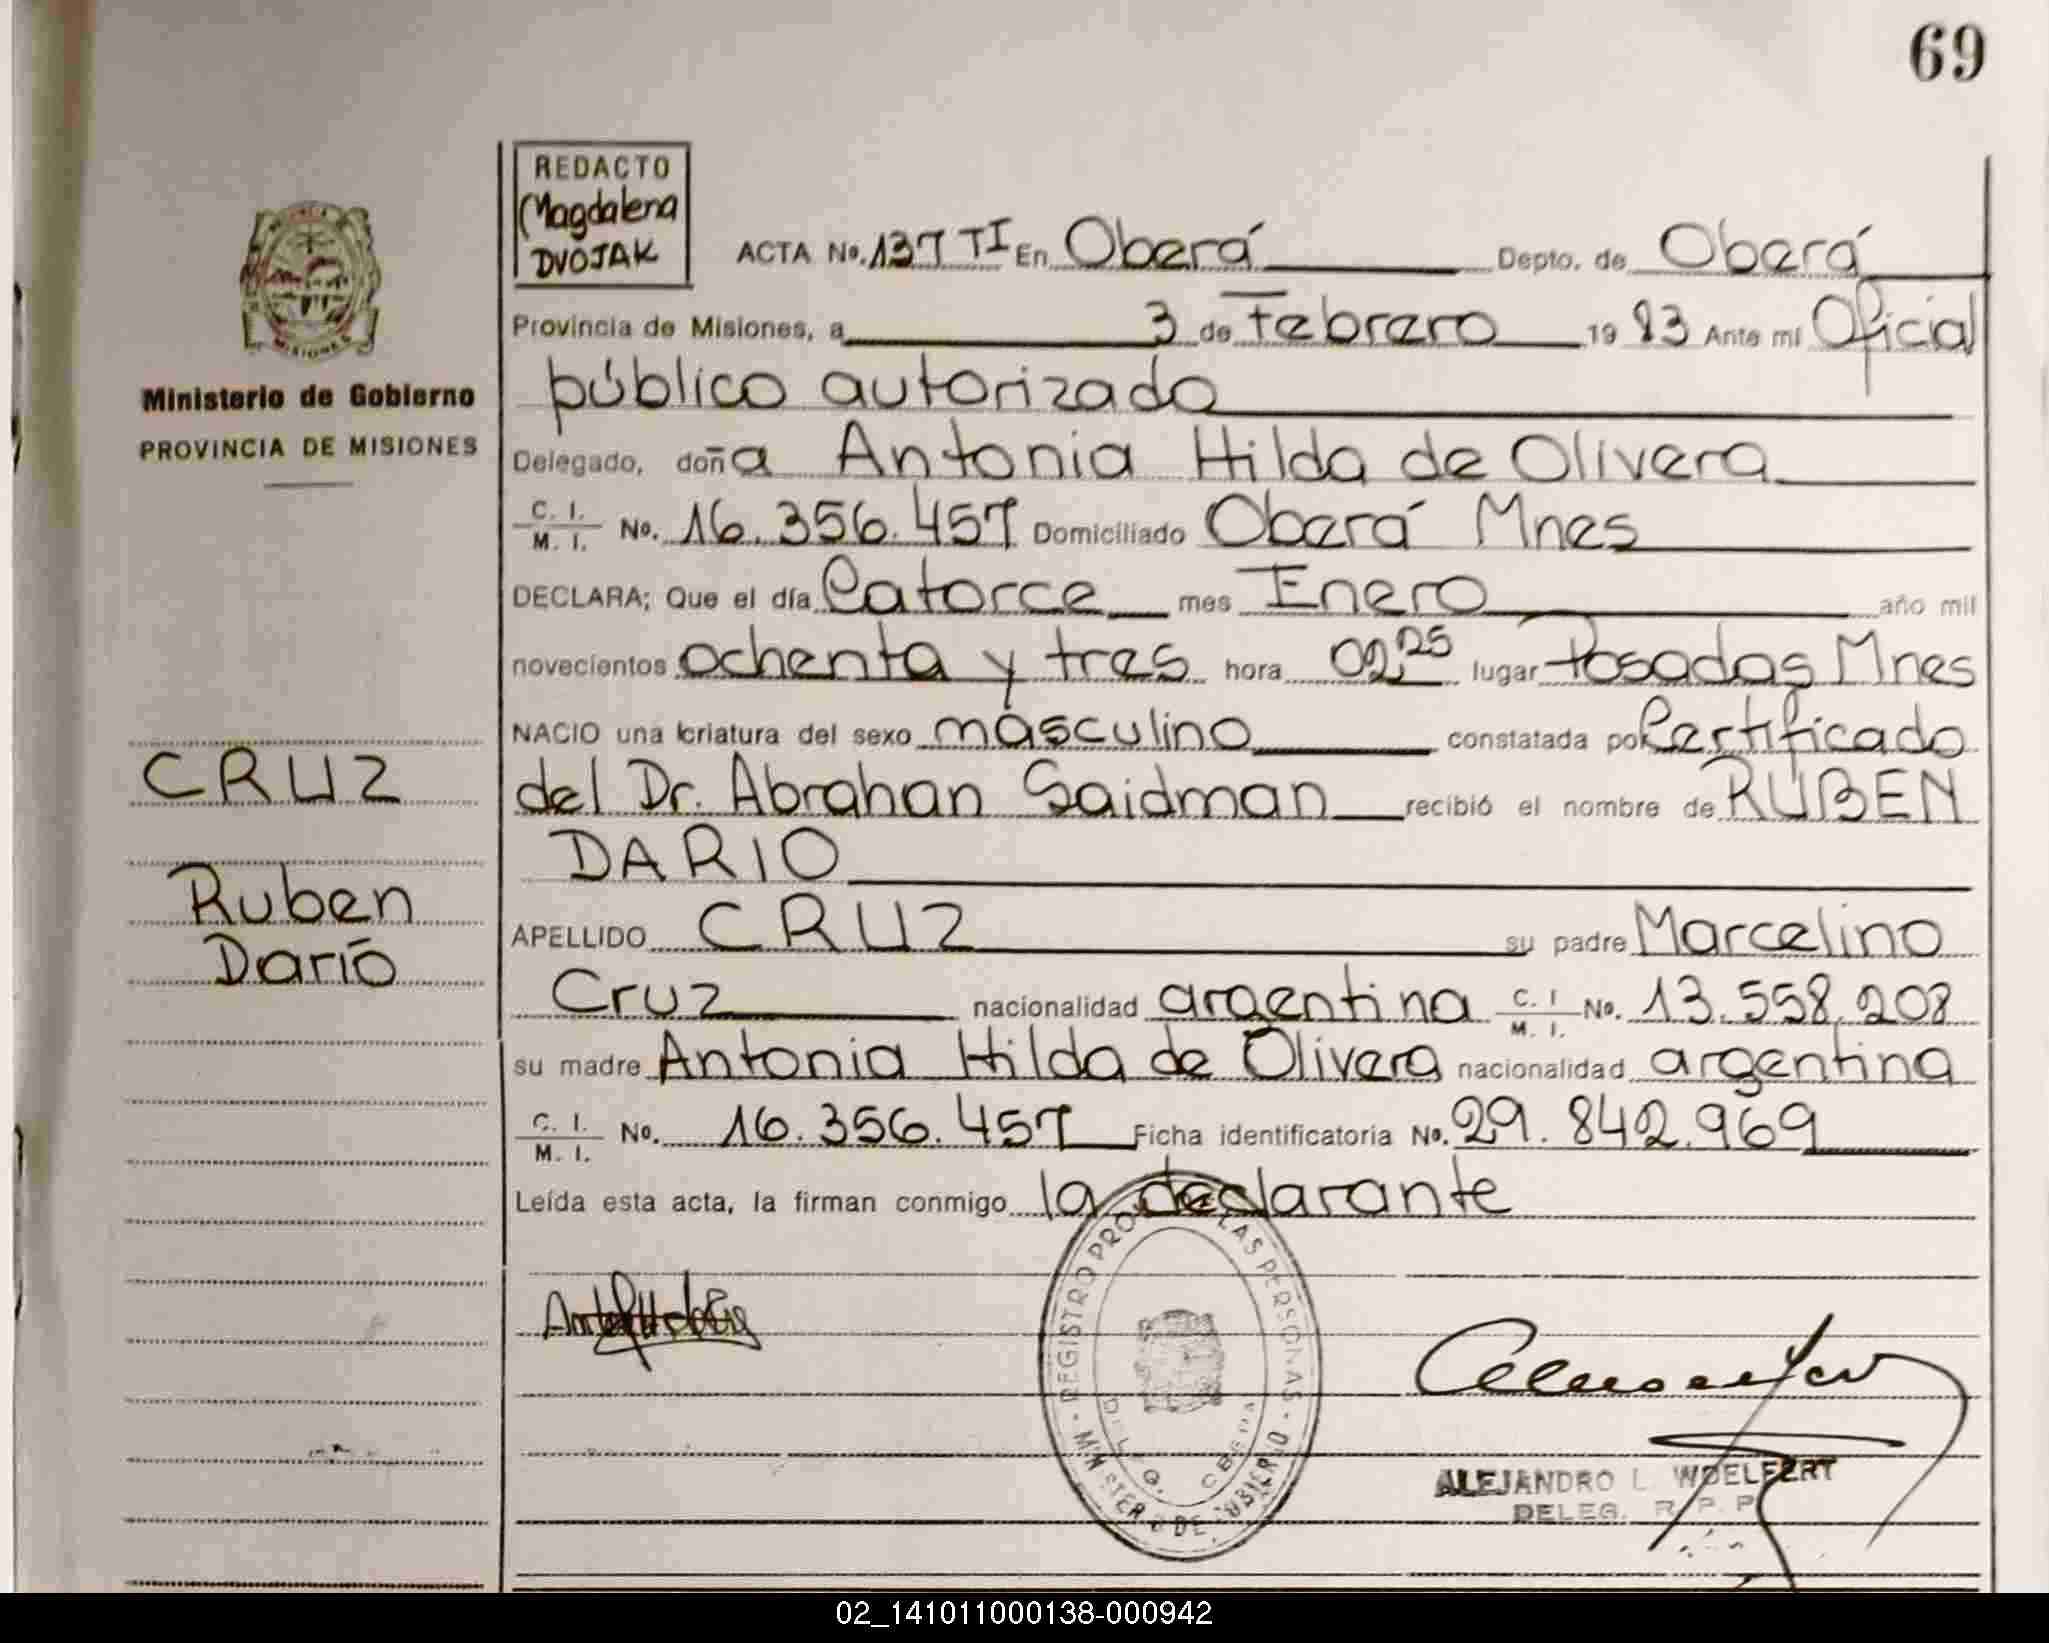 69
REDACTO
Magdalena
DVOJAK
ACTA No. 137 TI En Oberá Depto. de Oberá
Provincia de Misiones, a 3 de Febrero 1983 Ante mí Oficial
público autorizado
Ministerio de Gobierno
PROVINCIA DE MISIONES
MISIONES
Delegado, doña Antonia Hilda de Olivera
C. I. / M. I. No. 16.356.457 Domiciliado Oberá Mnes
DECLARA; Que el día Catorce mes Enero año mil
novecientos ochenta y tres hora 02,25 lugar Posadas Mnes
NACIO una criatura del sexo masculino constatada por Certificado
del Dr. Abrahan Saidman recibió el nombre de RUBEN
DARIO
CRUZ
Ruben
Darío
APELLIDO CRUZ su padre Marcelino
Cruz nacionalidad argentina C. I / M. I. No. 13.558.208
su madre Antonia Hilda de Olivera nacionalidad argentina
C. I. / M. I. No. 16.356.457 Ficha identificatoria No. 29.842.969
Leída esta acta, la firman conmigo la declarante
REGISTRO PRO LAS PERSONAS
ALEJANDRO L. WOELFERT
DELEG. R. P. P.
02_141011000138-000942